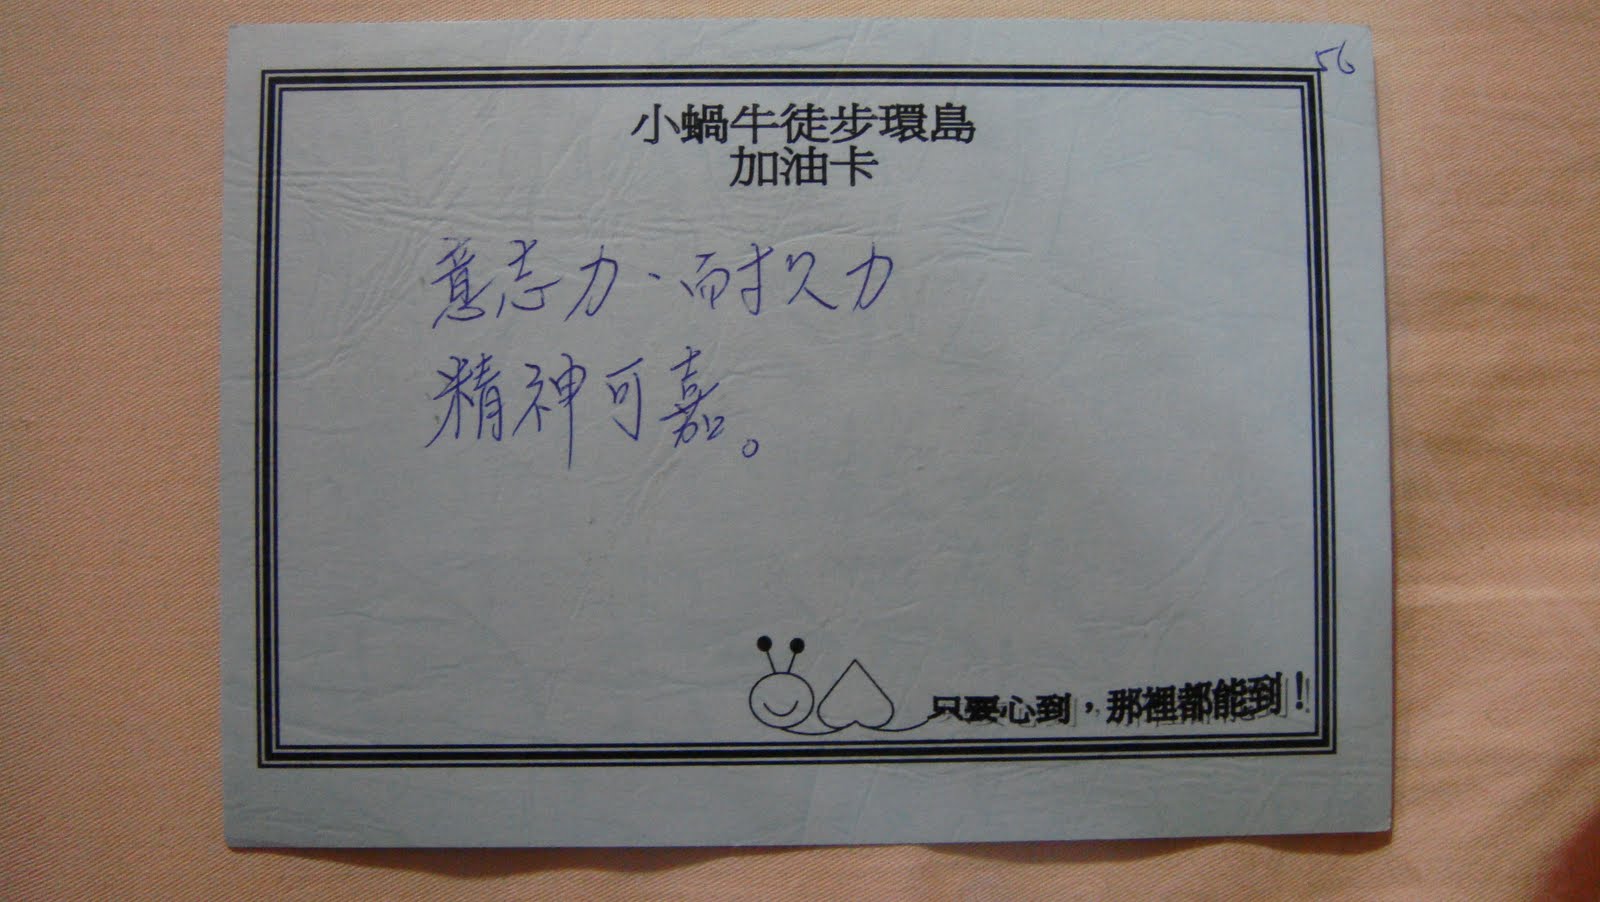 56
小蝸牛徒步環島
加油卡
意志力、耐久力
精神可嘉。
只要心到，那裡都能到！